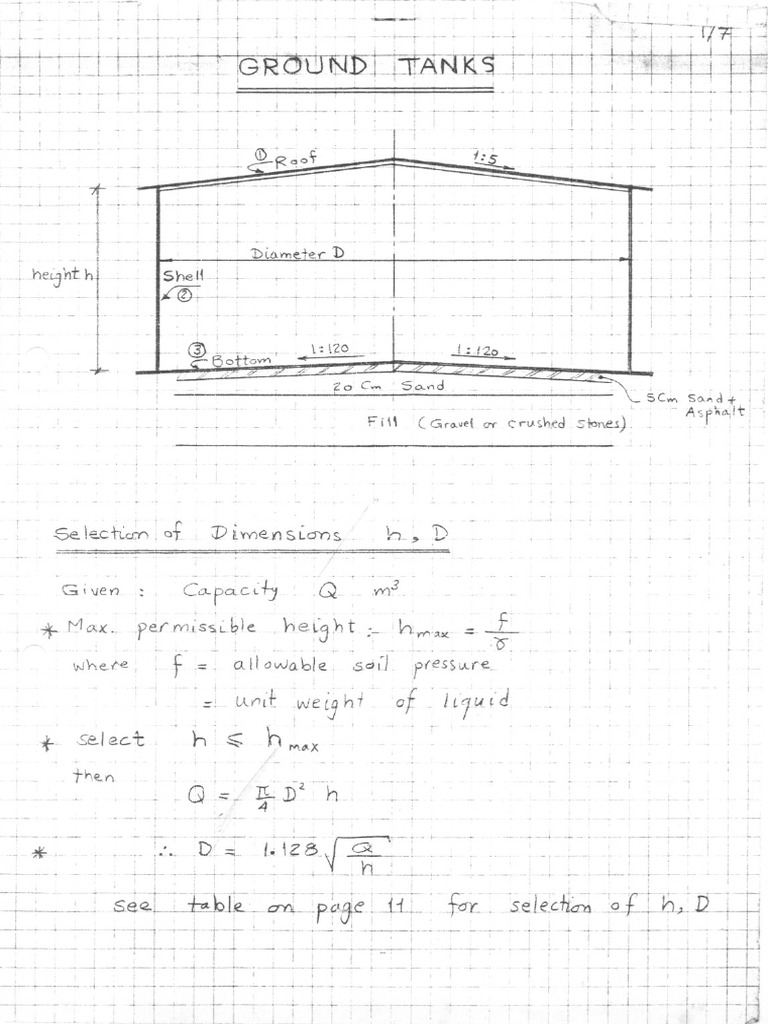 1/7
GROUND TANKS
① Roof
1:5
Diameter D
height h
Shell
②
③ Bottom
1:120
1:120
20 Cm Sand
5Cm Sand +
Asphalt
Fill (Gravel or crushed stones)
Selection of Dimensions h, D
Given : Capacity Q m³
* Max. permissible height :- h max = f/γ
where f = allowable soil pressure
= unit weight of liquid
* select h ≤ h max
then
Q = π/4 D² h
* ∴ D = 1.128 √(Q/h)
see table on page 11 for selection of h, D